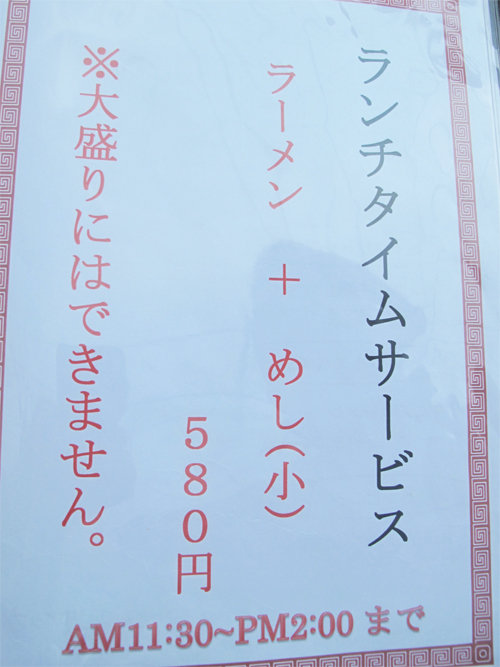 ランチタイムサービス
ラーメン ＋ めし（小）
５８０円
※大盛りにはできません。
AM11:30~PM2:00 まで